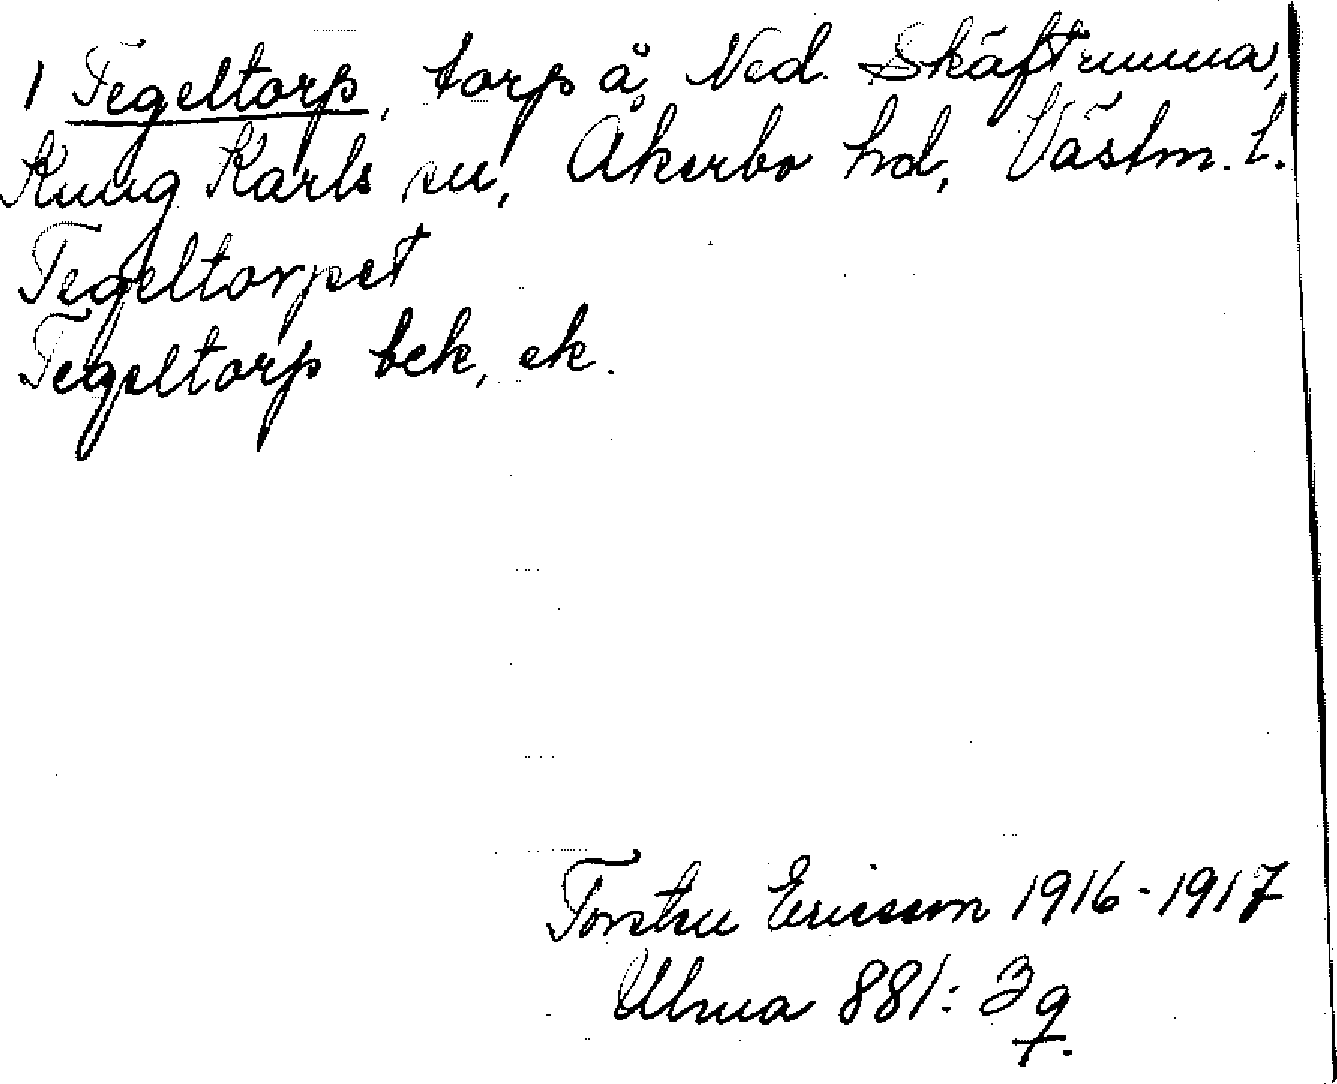 1 Tegeltorp, torp å Ned. Skäftruna,
Kung Karls sn, Åkerbo hd, Västm. l.
Tegeltorpet
Tegeltorp bek, ek.
Torsten Ericsson 1916-1917
Ulma 881: 3 q.